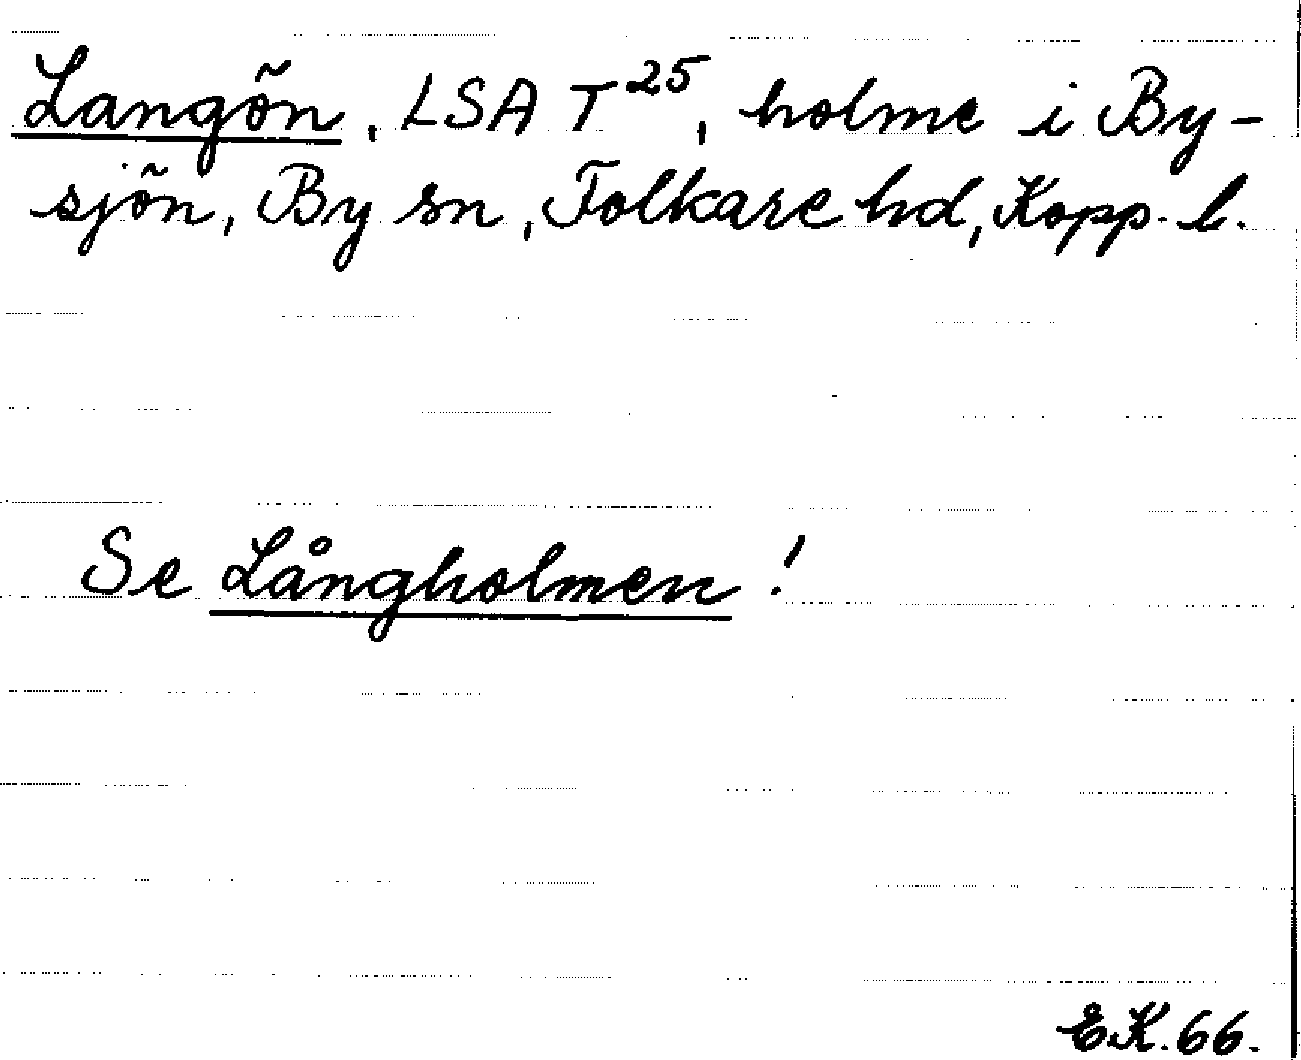 Langön, LSA T25, holme i By-
sjön, By sn, Folkare hd, Kopp. l.
Se Långholmen!
E.K. 66.